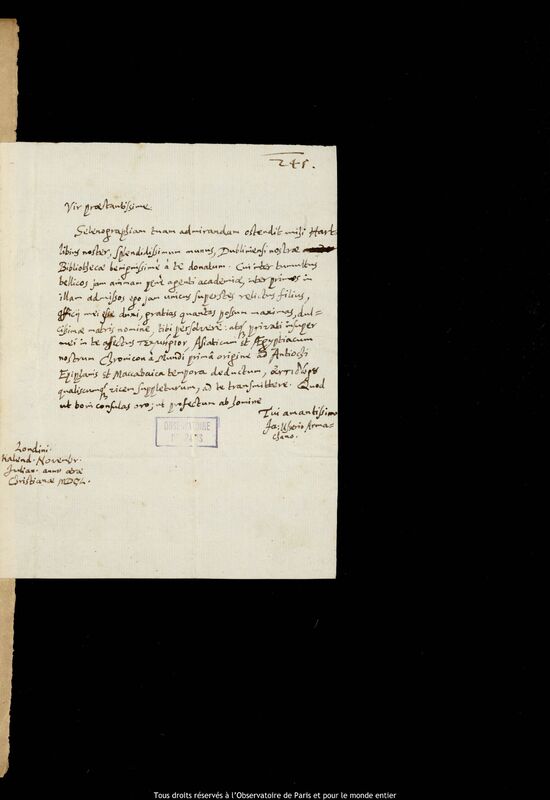 245.
Vir præstantissime
Selenographiam tuam admirandam ostendit mihi Hart-
libius noster, splendidissimum munus, Dubliniensi nostræ
Bibliothecæ benignissimè à te donatum. Cui inter tumultus
bellicos jam animam penè agenti academiæ, inter primos in
illam admissos ego jam unicus superstes relictus filius,
officij mei esse duxi, gratias quantas possum maximas, dul-
cissimæ matris nomine, tibi persolvere: atq privati insuper
mei in te affectus τεκμήριον, Asiaticum et Ægyptiacum
nostrum Chronicon à Mundi primâ origine ad Antiochi
Epiphanis et Maccabaica tempora deductum, ἀντιδώρου
qualiscunq vicem suppleturum, ad te transmittere. Quod
ut boni consulas oro; ut profectum ab homine
Tui amantissimo
Ja: Usserio Arma-
chano.
OBSERVATOIRE
DE PARIS
Londini.
Kalend. Novembr.
Julian. anno æræ
Christianæ MDCL.
Tous droits réservés à l'Observatoire de Paris et pour le monde entier